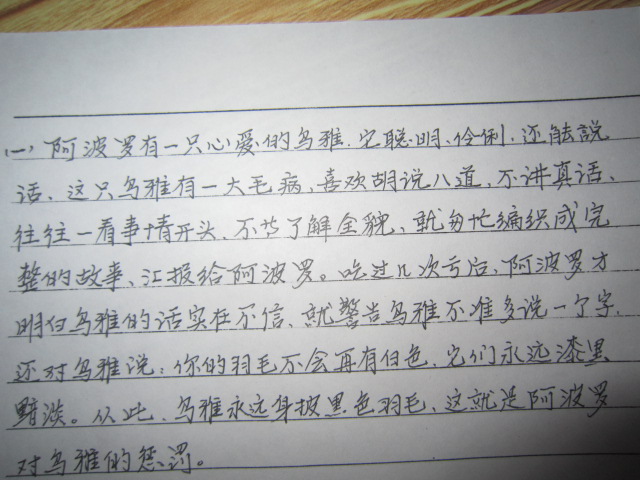 (一)、阿波罗有一只心爱的乌鸦.它聪明.伶俐.还能説
话、这只乌鸦有一大毛病,喜欢胡说八道,不讲真话、
往往一看事情开头、不去了解全貌、就匆忙编织成完
整的故事、汇报给阿波罗。吃过几次亏后,阿波罗才
明白乌鸦的话实在不信、就警告乌鸦不准多说一个字.
还对乌鸦说:你的羽毛不会再有白色.它们永远漆黑
黯淡。从此.乌鸦永远身披黑色羽毛、这就是阿波罗
对乌鸦的惩罚。